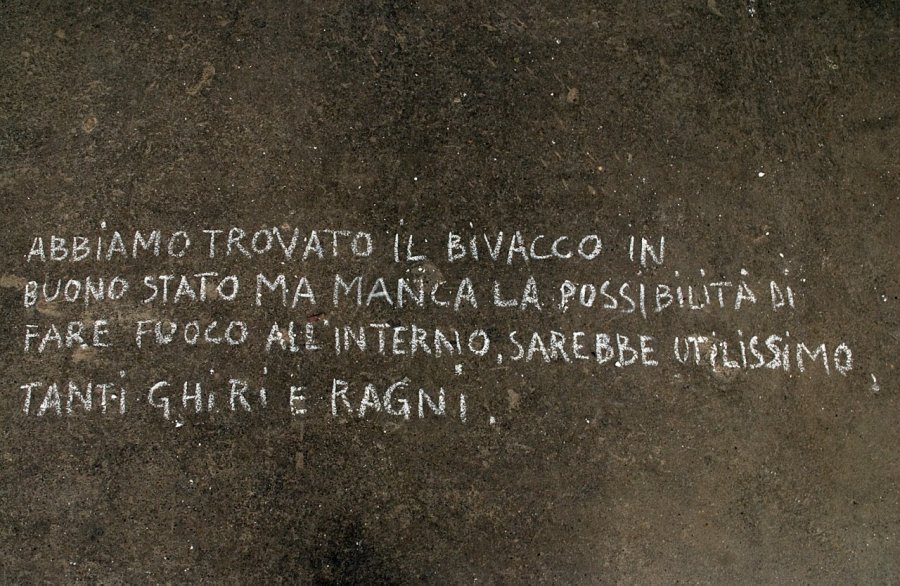 ABBIAMO TROVATO IL BIVACCO IN
BUONO STATO MA MANCA LA POSSIBILITÀ DI
FARE FUOCO ALL'INTERNO, SAREBBE UTILISSIMO.
TANTI GHIRI E RAGNI.